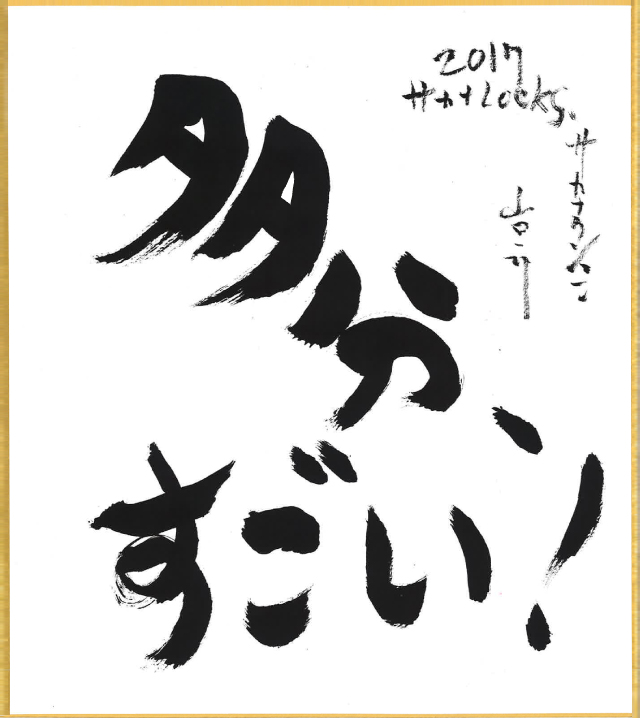 2017
サカナLocks.
サカナクション
山口一郎
多分、
すごい!